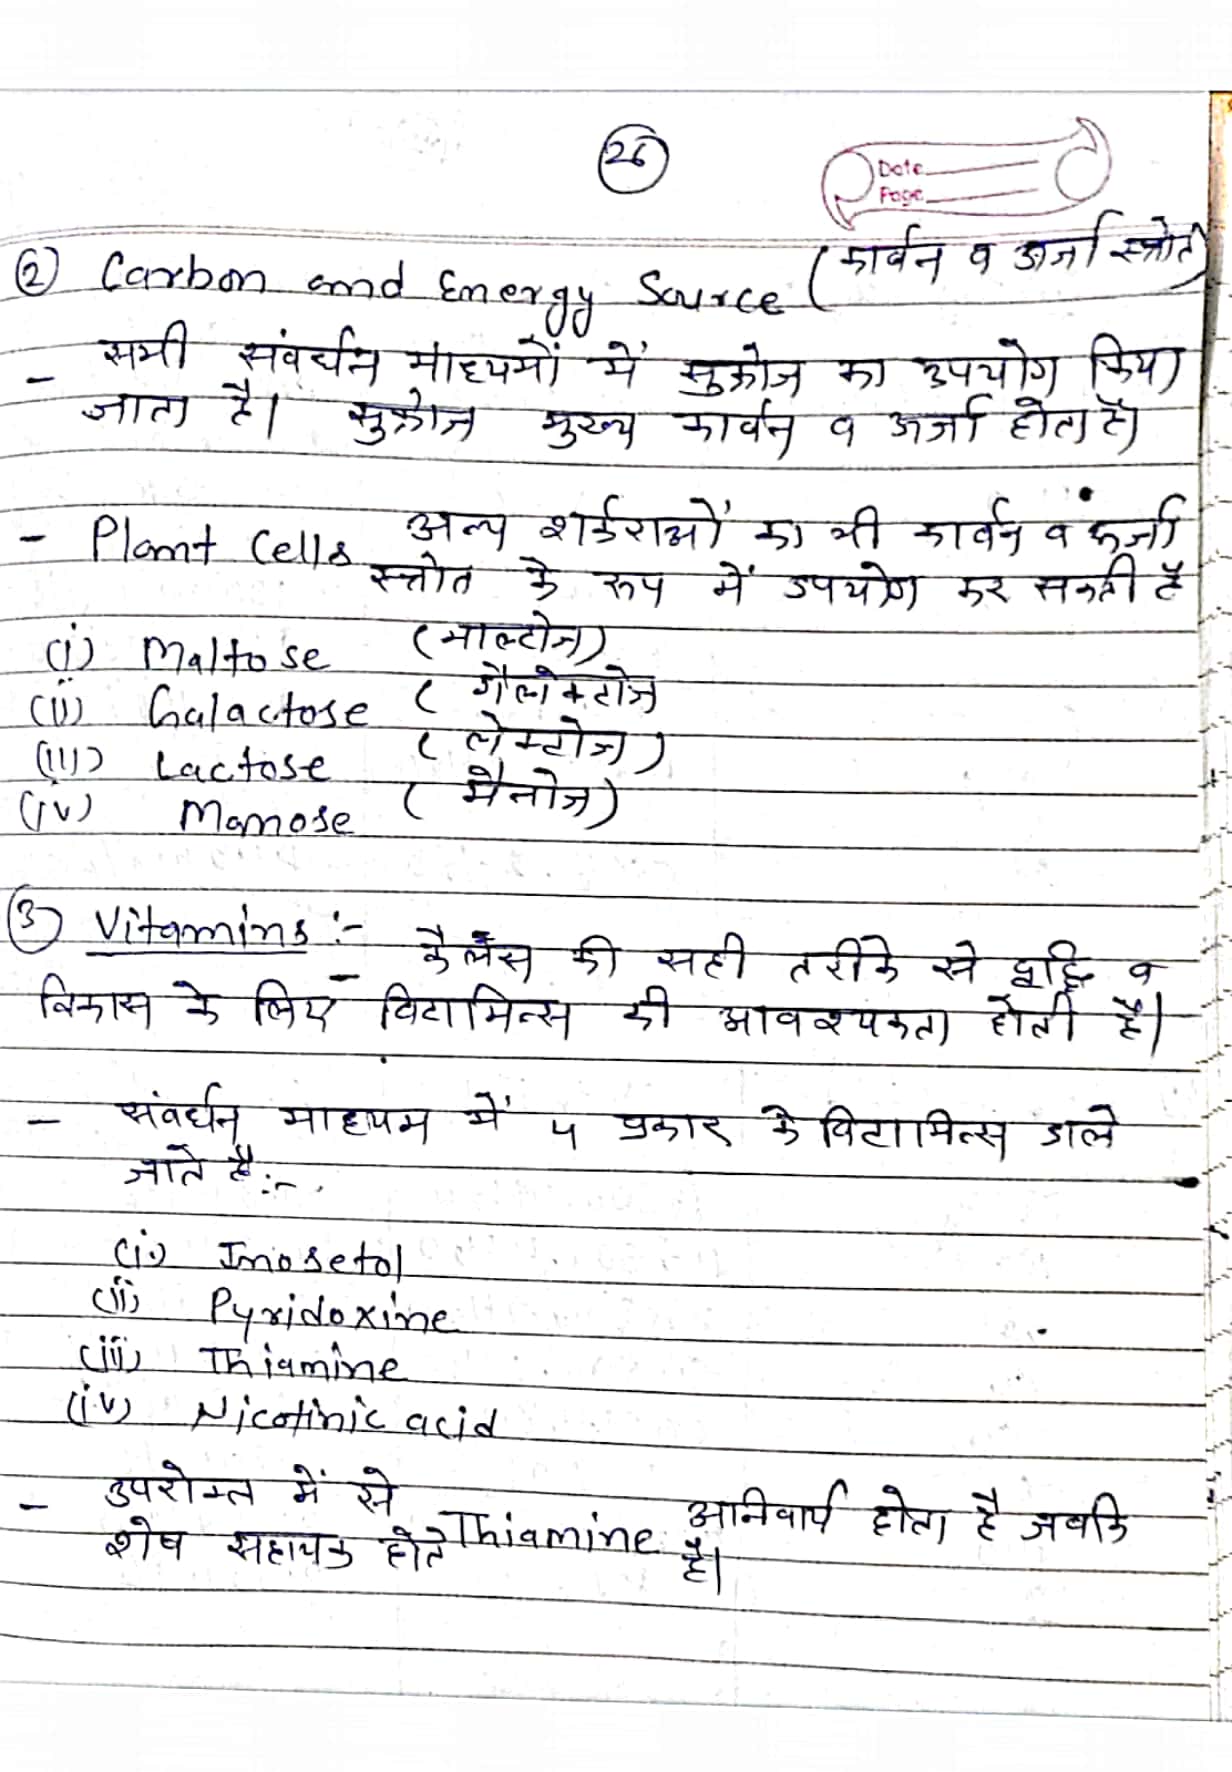 26
Date
Page
② Carbon and Energy Source (कार्बन व ऊर्जा स्त्रोत)
- सभी संवर्धन माध्यमों में सुक्रोज का उपयोग किया
जाता है। सुक्रोज मुख्य कार्बन व ऊर्जा होता है।
- Plant Cells अन्य शर्कराओं का भी कार्बन व ऊर्जा
स्त्रोत के रूप में उपयोग कर सकती है
(i) Maltose (माल्टोज)
(ii) Galactose (गैलेक्टोज
(iii) Lactose (लेक्टोज)
(iv) Manose (मैनोज)
③ Vitamins :- कैलस की सही तरीके से वृद्धि व
विकास के लिए विटामिन्स की आवश्यकता होती है।
- संवर्धन माध्यम में 4 प्रकार के विटामिन्स डाले
जाते है :-
(i) Inosetol
(ii) Pyridoxine
(iii) Thiamine
(iv) Nicotinic acid
- उपरोक्त में से Thiamine अनिवार्य होता है जबकि
शेष सहायक होते है।